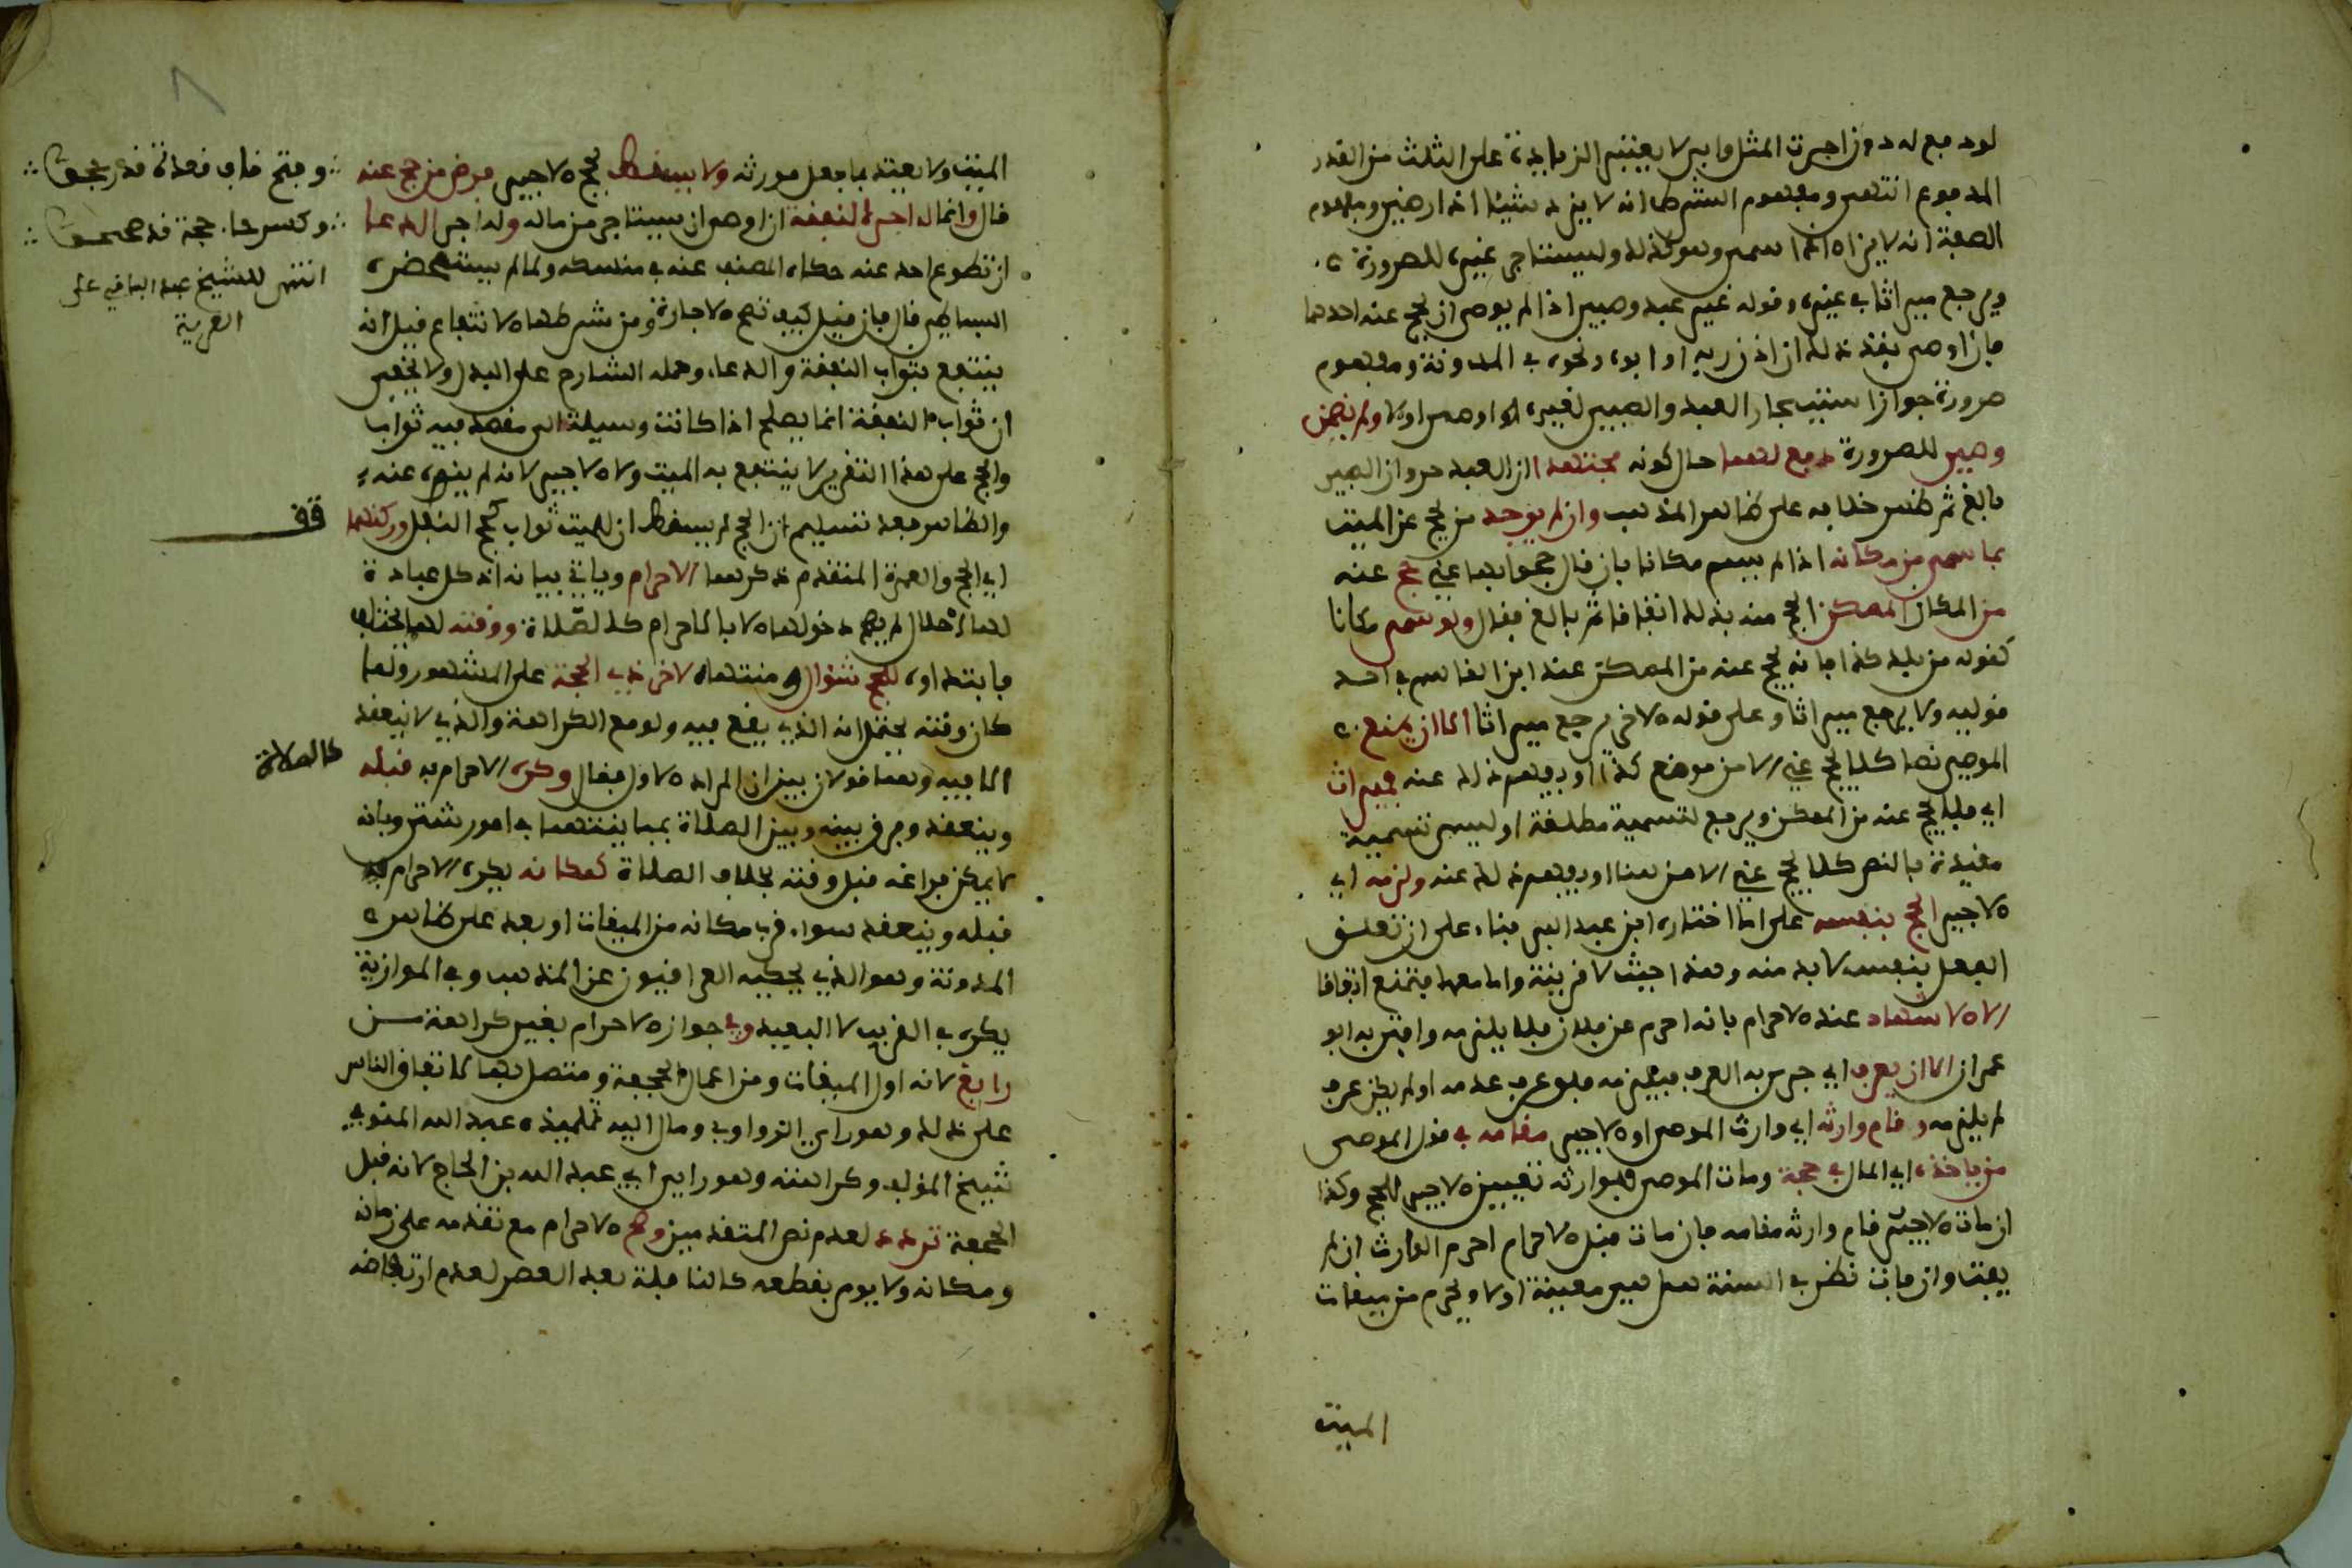 لو دفع له دون اجرت المثل وابى لا يعتبر الزيادة على الثلث من القدر
المدفوع انتهى ومفهوم الشرط انه لا يزد شيئا اذا رضي ومفهوم
الصفة انه لا يزاد اذا سمى وهو كذلك وليستاجر غيره للصرورة
ويرجع ميراثا في غيره وقوله غير عبد وصبي اذا لم يوص ان يحج عنه احدهما
فان اوصى نفذ ذلك ان اذن ربه او ابوه ونحوه في المدونة ومفهوم
صرورة جواز استيجار العبد والصبي لغيره اذا اوصى اولا ولم يضمن
وصي للصرورة دفع لهما حال كونه مجتهدا ان العبد حر وان الصبي
بالغ ثم ظهر خلافه على ظاهر المذهب وان لم يوجد من يحج عن الميت
بما سمى من مكانه اذا لم يسم مكانا بان قال حجوا بها عني حج عنه
من المكان الممكن الحج منه بذلك اتفاقا ثم بالغ فقال ولو سمى مكانا
كقوله من بلد كذا فانه يحج عنه من الممكن عند ابن القاسم في احد
قوليه ولا يرجع ميراثا وعلى قوله الاخر يرجع ميراثا الا ان يمنع
الموصي نصا كلا يحج عني الا من موضع كذا او يفهم ذلك عنه فميراث
اي فلا يحج عنه من الممكن ويرجع لتسمية مطلقة او ليس تسمية
مقيدة بالنص كلا يحج عني الا من هنا او يفهم ذلك عنه ولزمه اي
الاجير الحج بنفسه على ما اختاره ابن عبد البر بناء على ان تعلق
الفعل بنفسه لا بد منه وهذا حيث لا قرينة واما معها فيمنع اتفاقا
لا الاشهاد عند الاحرام بانه احرم عن فلان فلا يلزمه وافتى به ابو
عمران الا ان يعرف اي جرى به العرف فيلزمه فلو عرف عدمه او لم يكن عرف
لم يلزمه وقام وارثه اي وارث الموصى او الاجير مقامه في قول الموصى
من ياخذه اي المال في حجة ومات الموصى فلوارثه تعيين الاجير للحج وكذا
ان مات الاجير قام وارثه مقامه فان مات قبل الاحرام احرم الوارث ان لم
يفت وان فات نظر في السنة هل هي معينة اولا ويحرم من ميقات
الميت
الميت ولا يعتد بما فعل مورثه ولا يسقط بحج الاجير فرض من حج عنه
قال وانما له اجر النفقة ان اوصى ان يستاجر من ماله وله اجر الدعا
ان تطوع احد عنه حكاه المصنف عنه في منسكه ولما لم يستحضره
البساطي قال فان قيل كيف تصح الاجارة ومن شرطها الانتفاع قيل انه
ينتفع بثواب النفقة والدعاء وحمله الشارح على البدل ولا يخفى
ان ثواب النفقة انما يصلح اذا كانت وسيلة الى مقصد فيه ثواب
والحج على هذا التقرير لا ينتفع به الميت ولا الاجير لانه لم ينوه عنه
والظاهر بعد تسليم ان الحج لم يسقط ان للميت ثواب كحج النفل وركنهما
اي الحج والعمرة المتقدم ذكرهما الاحرام وياتي بيانه اذ كل عبادة
لها احلال لم يصح دخولها الا بالاحرام كالصلاة ووقته لهما يختلف
فابتداوه للحج شوال ومنتهاه لاخر ذي الحجة على المشهور ولما
كان وقته يحتمل انه الذي يقع فيه ولو مع الكراهة والذي لا ينعقد
الا فيه وهما قولان بين ان المراد الاول فقال وكره الاحرام به قبله
وينعقد وفرق بينه وبين الصلاة بمباينتهما في امور شتى وبانه
لا يمكن فراغه قبل وقته بخلاف الصلاة كمكانه يكره الاحرام به
قبله وينعقد سواء قرب مكانه من الميقات او بعد على ظاهر
المدونة وهو الذي يحكيه العراقيون عن المذهب وفي الموازية
يكره في القريب لا البعيد وفي جواز الاحرام بغير كراهة من
رابغ لانه اول الميقات ومن اعمال الجحفة ومتصل بها لاتفاق الناس
على ذلك وهو راي الزواوي ومال اليه تلميذه عبد الله المنوفي
شيخ المؤلف وكراهته وهو راي ابي عبد الله بن الحاج لانه قبل
الجحفة تردد لعدم نص المتقدمين وصح الاحرام مع تقدمه على زمانه
ومكانه ولا يوم بقطعه كالنافلة بعد العصر لعدم ارتفاضه
وفتح قاف قعدة قد رجحوا
وكسر حاء حجة قد صححوا
انتهى للشيخ عبد الباقي على
العزية
قف
كالصلاة